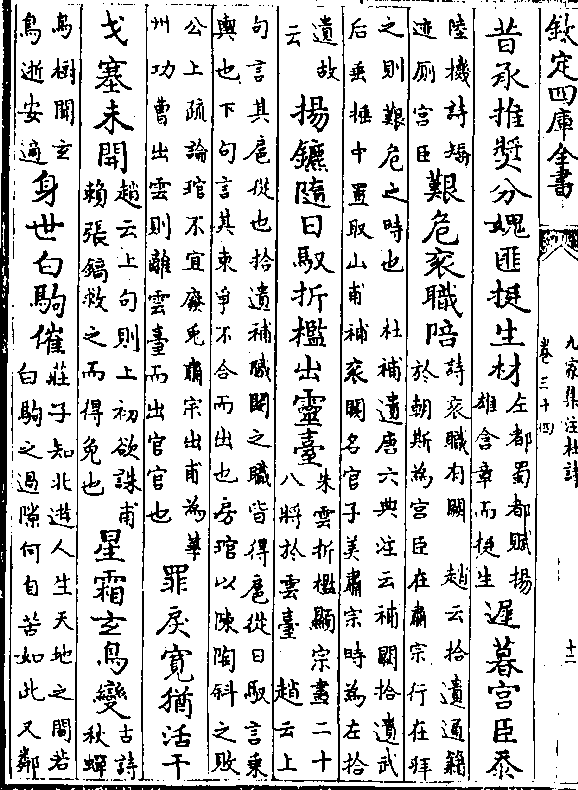 欽定四庫全書
九家集注杜詩
卷三十四
十二
昔承推奬分媿匪挺生材左都蜀都賦揚雄含章而挺生遲暮宮臣忝
陸機詩矯迹厠宮臣艱危衮職陪詩衮職有闕 趙云拾遺通籍於朝斯為宮臣在肅宗行在拜
之則艱危之時也 杜補遺唐六典注云補闕拾遺武后垂拱中置取山甫補衮闕名官子美肅宗時為左拾
遺故云揚鑣隨日馭折檻出靈臺朱雲折檻顯宗畫二十八將於雲臺 趙云上
句言其扈從也拾遺補職闕之職皆得扈從日馭言乗輿也下句言其束爭不合而出也房琯以陳陶斜之敗
公上疏論琯不宜廢免肅宗出甫為華州功曹出雲則離雲臺而出官官也罪戾寛猶活干
戈塞未開趙云上句則上初欲誅甫賴張鎬救之而得免也星霜𤣥鳥變古詩秋蟬
鳥樹間𤣥鳥逝安適身世白駒催莊子知北遊人生天地之間若白駒之過隙何自苦如此又鄒